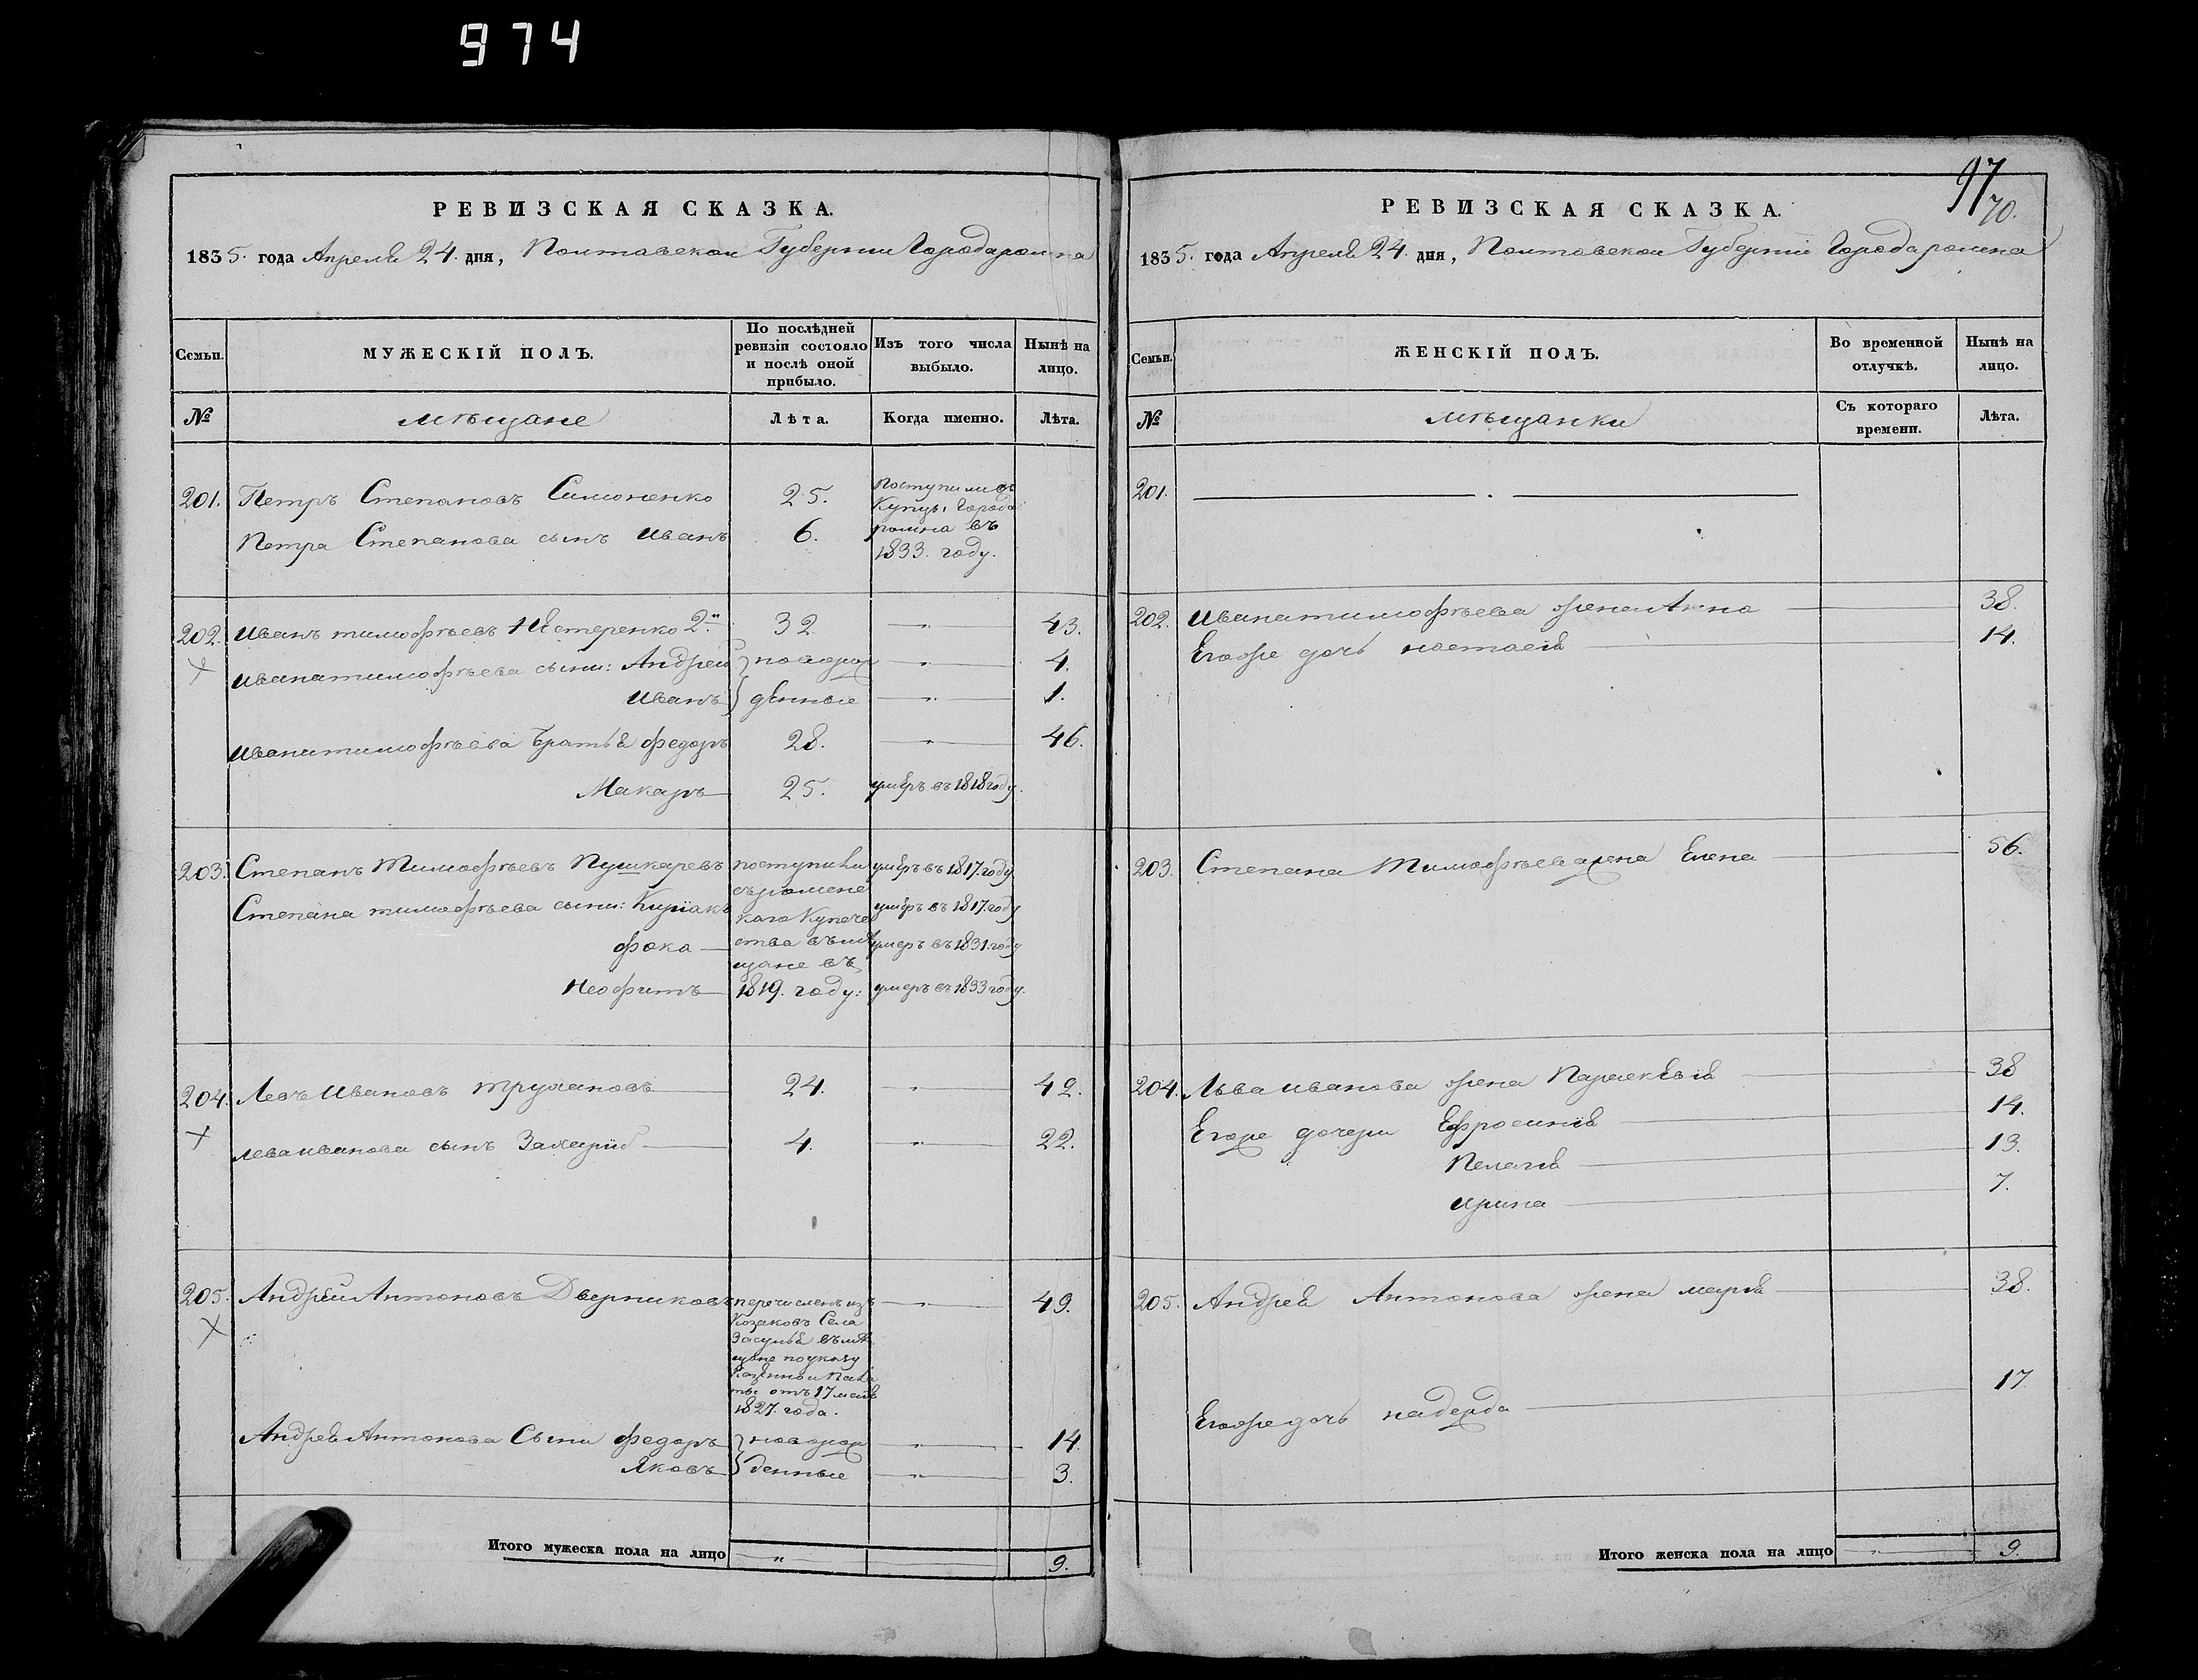 974
РЕВИЗСКАЯ СКАЗКА.
1835. года Апреля 24. дня, Полтавской Губернии Города ромна
Семьи.
МУЖЕСКІЙ ПОЛЪ.
По послѣдней ревизіи состояло и послѣ оной прибыло.
Изъ того числа выбыло.
Нынѣ на лицо.
№
мѣщане
Лѣта.
Когда именно.
Лѣта.
201. Петръ Степановъ Симоненко 25.
поступили въ
Купцы Города
ромна въ
1833. году.
Петра Степанова сынъ Иванъ 6.
202. Иванъ тимофѣевъ Нестеренко 2й 32 — " — 43.
Ивана тимофѣева сыны: Андрей } новорож — " — 4.
Иванъ } денные — " — 1.
Ивана тимофѣева братья федоръ 28. — " — 46.
Макаръ 25. умеръ въ 1818 году.
203. Степанъ Тимофѣевъ Пушкаревъ поступили умеръ въ 1817. году
Степана тимофѣева сыны: Киріакъ
съ роменс
каго Купече
умеръ въ 1817. году
фока — ства въ мѣ умеръ въ 1831. году
щане въ
Неофитъ — 1819. году: умеръ въ 1833 году.
204. Левъ Ивановъ Трухановъ 24. — " — 42.
Лева иванова сынъ Захарій 4. — " — 22.
205. Андрей Антоновъ Дверниковъ перечисленъ изъ — " — 49.
Козаковъ Села
Засулья въ мѣ
щане по указу
Казенной Пала
ты отъ 17 мая
1827. года.
Андрея Антонова Сыны федоръ } новорож — " — 14.
Яковъ } денные — " — 3.
Итого мужеска пола на лицо " 9.
97
70.
РЕВИЗСКАЯ СКАЗКА.
1835. года Апреля 24. дня, Полтавской Губерніи Города ромна
Семьи.
ЖЕНСКІЙ ПОЛЪ.
Во временной отлучкѣ.
Нынѣ на лицо.
№
мѣщанки
Съ котораго времени.
Лѣта.
201. — . —
202. Ивана тимофѣева жена Анна — 38.
Егоже дочь настасія — 14.
203. Степана Тимофѣева жена Елена — 56.
204. Льва иванова жена Параскевія — 38
Егоже дочери Ефросинія — 14.
Пелагія — 13.
ирина — 7.
205. Андрея Антонова жена марія — 38.
Егоже дочь надежда — 17
Итого женска пола на лицо " 9.